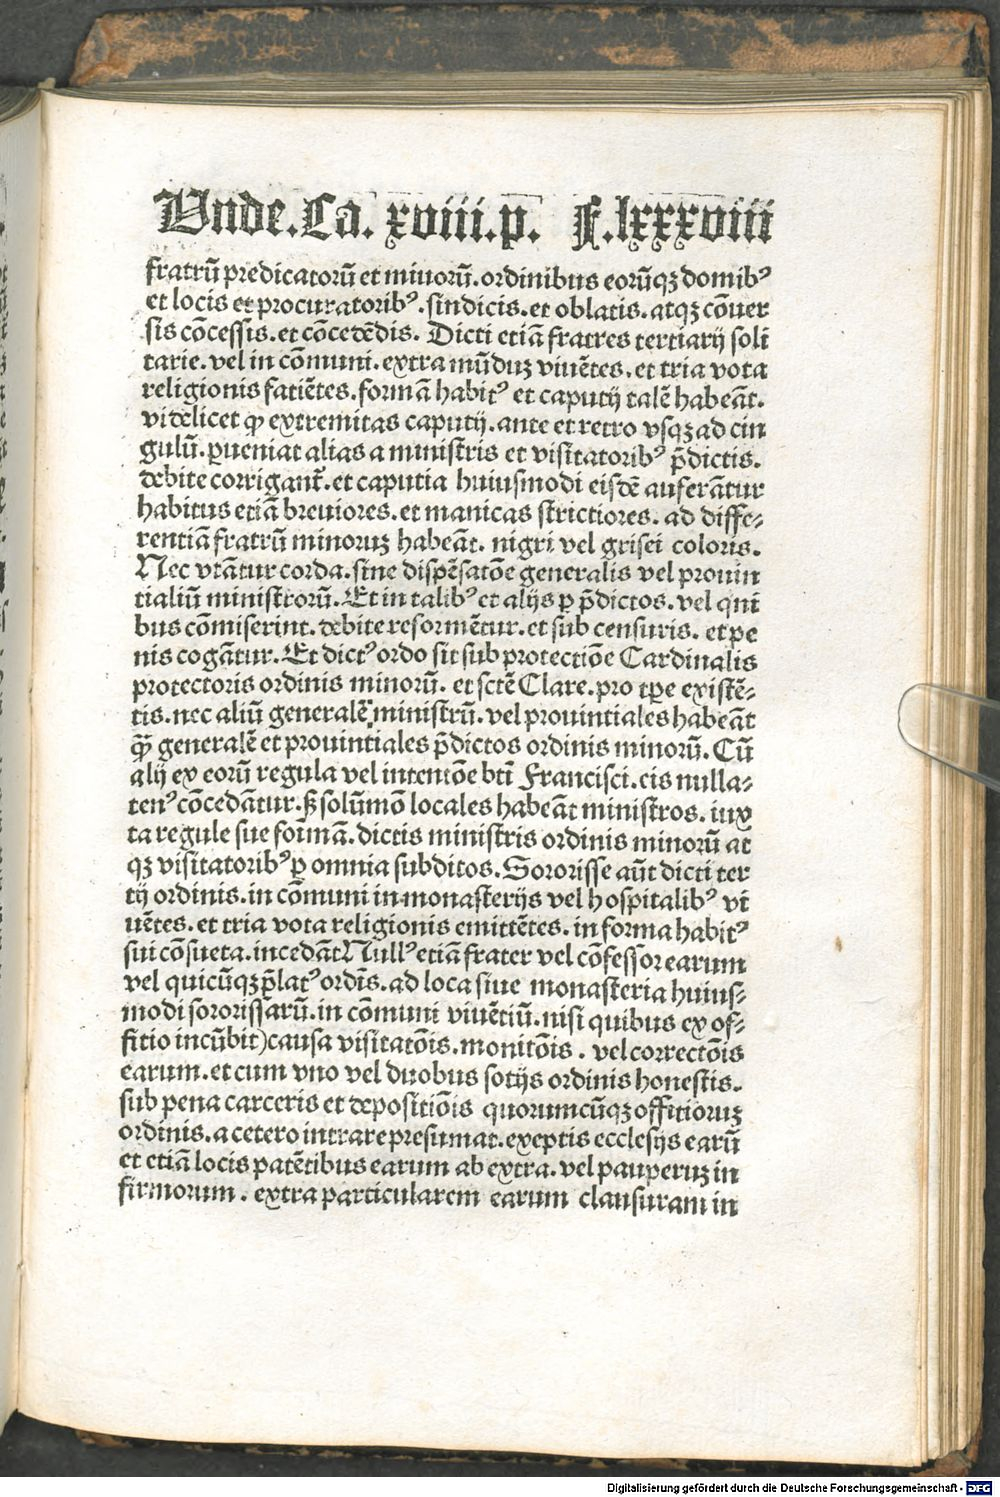 Vnde.Ca. xviii.p. F.lxxxviii
fratrū predicatorū et minorū.ordinibus eorūqꝫ domibꝰ
et locis et procuratoribꝰ.sindicis.et oblatis.atqꝫ cōuer
sis cōcessis.et cōcedēdis. Dicti etiā fratres tertiarij soli
tarie.vel in cōmuni.extra mūduꝫ viuētes.et tria vota
religionis fatiētes.formā habitꝰ et caputij talē habeāt.
videlicet ꝙ extremitas caputij.ante et retro vsqꝫ ad cin
gulū.ꝑueniat alias a ministris et visitatoribꝰ p̄dictis.
debite corrigant̄.et caputia huiusmodi eisdē auferātur
habitus etiā breuiores.et manicas strictiores.ad diffe⸗
rentiā fratrū minoruꝫ habeāt. nigri vel grisei coloris.
Nec vtātur corda.sine dispēsatōe generalis vel prouin
tialiū ministrorū.Et in talibꝰ et alijs ꝑ p̄dictos.vel qui
bus cōmiserint.debite reformētur.et sub censuris. et pe
nis cogātur.Et dictꝰ ordo sit sub protectiōe Cardinalis
protectoris ordinis minorū. et sctē Clare.pro tp̄e existē⸗
tis.nec aliū generalē ministrū.vel prouintiales habeāt
q̄ꝫ generalē et prouintiales p̄dictos ordinis minorū.Cū
alij ex eorū regula vel intentōe bti Francisci.eis nulla⸗
tenꝰ cōcedātur.sꝫ solūmō locales habeāt ministros. iux
ta regule sue formā.dictis ministris ordinis minorū at
qꝫ visitatoribꝰ ꝑ omnia subditos.Sororisse aūt dicti ter
tij ordinis.in cōmuni in monasterijs vel hospitalibꝰ vi
uētes.et tria vota religionis emittētes.in forma habitꝰ
sui cōsueta.incedāt Nullꝰ etiā frater vel cōfessor earum
vel quicūqꝫ p̄latꝰ ordīs.ad loca siue monasteria huius⸗
modi sororissarū.in cōmuni viuētiū.nisi quibus ex of⸗
fitio incūbit)causa visitatōis.monitōis . vel correctōis
earum.et cum vno vel duobus sotijs ordinis honestis.
sub pena carceris et depositiōis quorumcūqꝫ offitioruꝫ
ordinis.a cetero intrare presumat.exeptis ecclesijs earū
et etiā locis patētibus earum ab extra.vel pauperuꝫ in
firmorum . extra particularem earum clausuram in
Digitalisierung gefördert durch die Deutsche Forschungsgemeinschaft - DFG